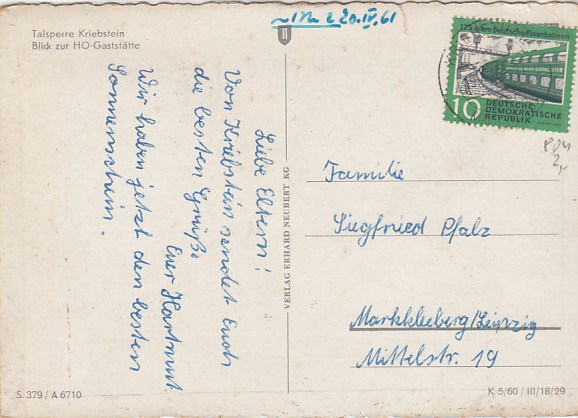 Talsperre Kriebstein
Blick zur HO-Gaststätte
20.IV.61
125 Jahre Deutsche Eisenbahnen
10 DEUTSCHE
DEMOKRATISCHE
REPUBLIK
Liebe Eltern!
Von Kriebstein sendet Euch
die besten Grüße
Euer Hartmut.
Wir haben jetzt den besten
Sonnenschein.
VERLAG ERHARD NEUBERT KG
Familie
Siegfried Pfalz
Markkleeberg/Leipzig
Mittelstr. 19
S. 379 / A 6710
K 5/60 / III/18/29